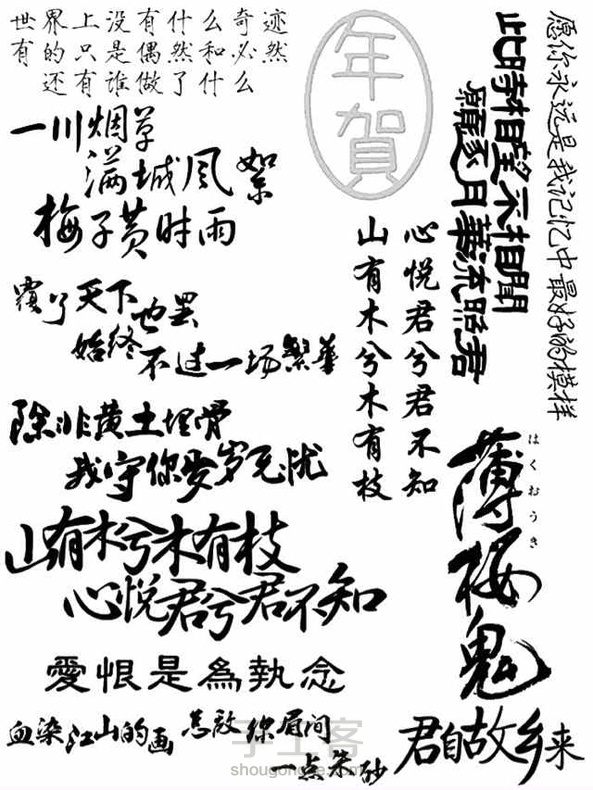 世界上没有什么奇迹
有的只是偶然和必然
还有谁做了什么
年賀
愿你永远是我记忆中最好的模样
此時相望不相聞
願逐月華流照君
一川烟草
满城风絮
梅子黄时雨
心悦君兮君不知
山有木兮木有枝
覆了天下也罢
始终不过一场繁華
除非黄土埋骨
我守你岁无忧
山有木兮木有枝
心悦君兮君不知
はくおうき
薄桜鬼
愛恨是為執念
血染江山的画
怎敌你眉间
一点朱砂
君自故乡来
手工客